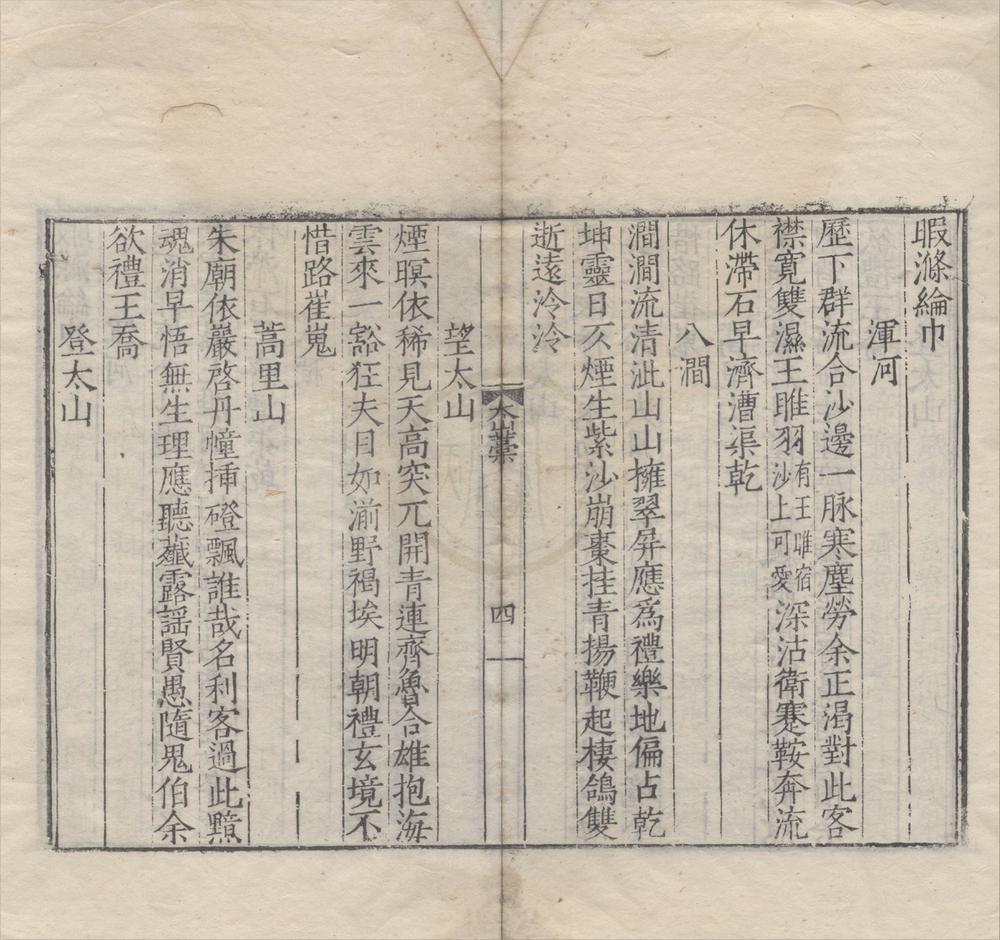 暇滌綸巾
渾河
歷下群流合沙邊一脉寒塵勞余正渴對此客
襟寛雙濕王雎羽有王雎宿沙上可愛深沽衛蹇鞍奔流
休滯石早濟漕渠乾
八澗
澗澗流清泚山山擁翠屏應爲禮樂地偏占乾
坤靈日夕煙生紫沙崩棗挂青揚鞭起棲鴿雙
逝遠泠泠
太山藁
四
望太山
煙暝依稀見天高突兀開青連齊魯合雄抱海
雲來一豁狂夫目如湔野褐埃明朝禮玄境不
惜路崔嵬
蒿里山
朱廟依巖啓丹幢挿磴飄誰哉名利客過此黯
魂消早悟無生理應聽薤露謡賢愚隨鬼伯余
欲禮王喬
登太山